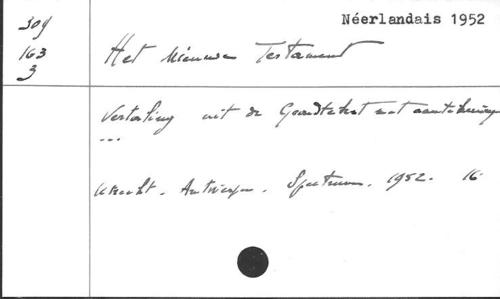 Néerlandais 1952
309
163
3
Het Nieuwe Testament
Vertaling uit de Grondtekst met aantekeningen
...
Utrecht. Antwerpen. Spectrum. 1952. 16